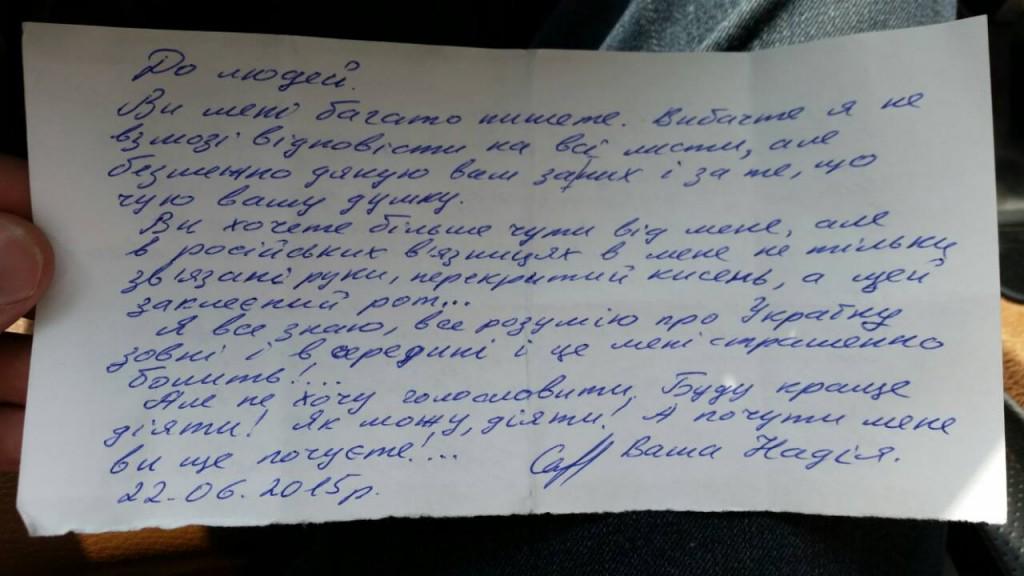 До людей.
Ви мені багато пишете. Вибачте я не
взмозі відповісти на всі листи, але
безмежно дякую вам за них і за те, що
чую вашу думку.
Ви хочете більше чути від мене, але
в російських в'язницях в мене не тільки
зв'язані руки, перекритий кисень, а щей
заклеєний рот...
Я все знаю, все розумію про Україну
зовні і в середині і це мені страшенно
болить!...
Але не хочу голословити. Буду краще
діяти! Як можу, діяти! А почути мене
ви ще почуєте!... Ваша Надія.
22.06.2015р.